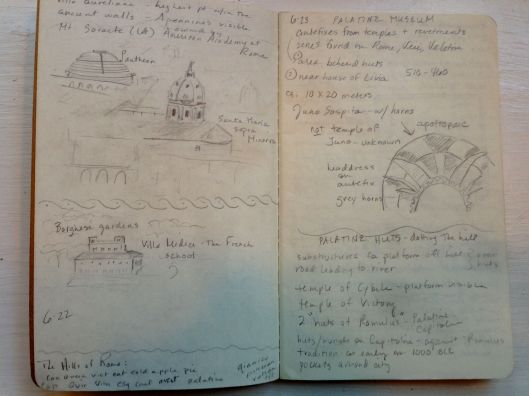 Villa Aureliana - highest pt w/in the
ancient walls - Apennines visible
Mt. Soracte (LA) owned by American Academy at Rome
Pantheon
Santa Maria
sopra
Minerva
Borghese gardens
Villa Medici - The French
school
6-22
The Hills of Rome:
Can Queen Vict eat cold apple pie
Cap Quir Vim Esq Cael Avent Palatine
6-23 PALATINE MUSEUM
antefixes from temples + revetments
series found in Rome, Veii, Velletri
area behind huts
② near house of Livia 510-460
ca. 10 x 20 meters
Juno Sospita - w/ horns
not temple of
Juno - unknown
apotropaic
headdress
on
antefix
grey horns
PALATINE HUTS - dotting the hill
substructures for platform of huts over
road leading to river
temple of Cybele - platform visible
temple of Victory
2 "huts of Romulus" - Palatine
Capitoline
huts/burials on Capitoline - against Romulus
tradition as early as 1000 BCE
pockets around city